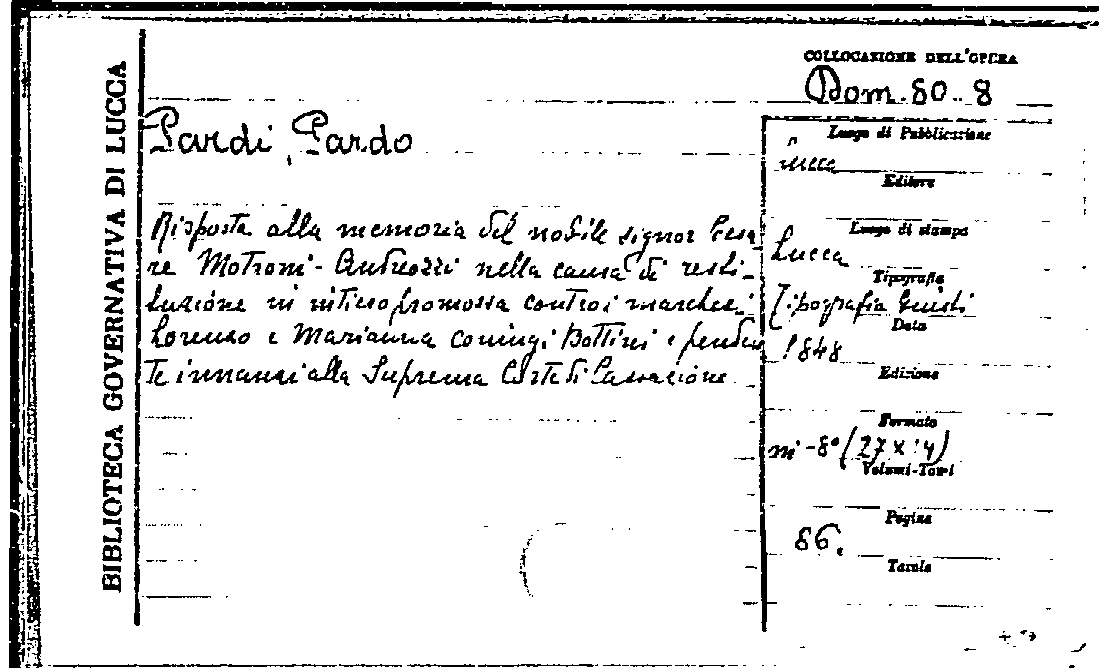 BIBLIOTECA GOVERNATIVA DI LUCCA
COLLOCAZIONE DELL'OPERA
Dom. 80.. 8
Pardi, Pardo
Risposta alla memoria del nobile signor Cesa-
re Motroni-Andreozzi nella causa di resti-
tuzione in intiero promossa contro i marchesi
Lorenzo e Marianna Bottini e penden
te innanzi alla Suprema Corte di Cassazione
Luogo di Pubblicazione
Lucca
Editore
Luogo di stampa
Lucca
Tipografia
Tipografia Giusti
Data
1848
Edizione
Formato
in-8° (27 x 14)
Volumi-Tomi
Pagine
86.
Tavole